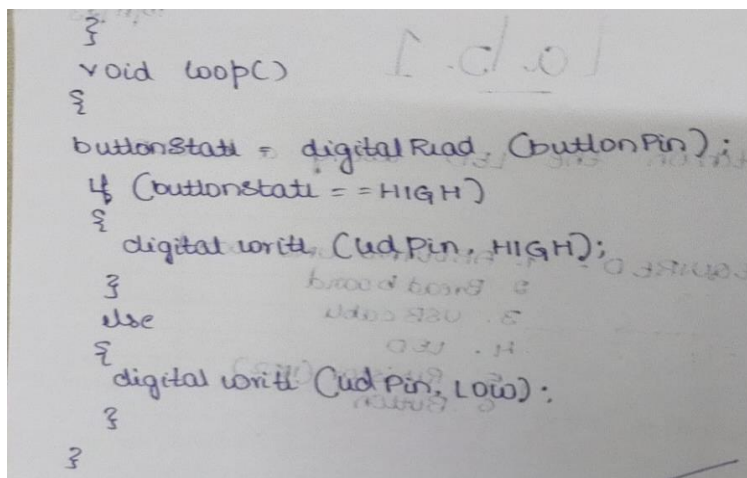 }
void loop()
{
buttonState = digitalRead (buttonPin);
if (buttonState == HIGH)
{
digital write (ledPin, HIGH);
}
else
{
digital write (ledPin, LOW);
}
}